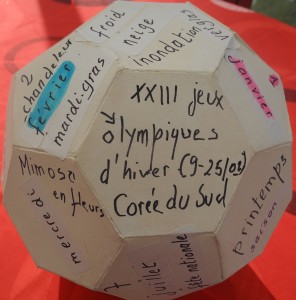 2
chandeleur
février
mardi-gras
froid
neige
inondation
verglas
1
janvier
XXIII jeux
olympiques
d'hiver (9-25/02)
Corée du Sud
Mimosa
en fleurs
mercredi
7
juillet
fête nationale
printemps
saison